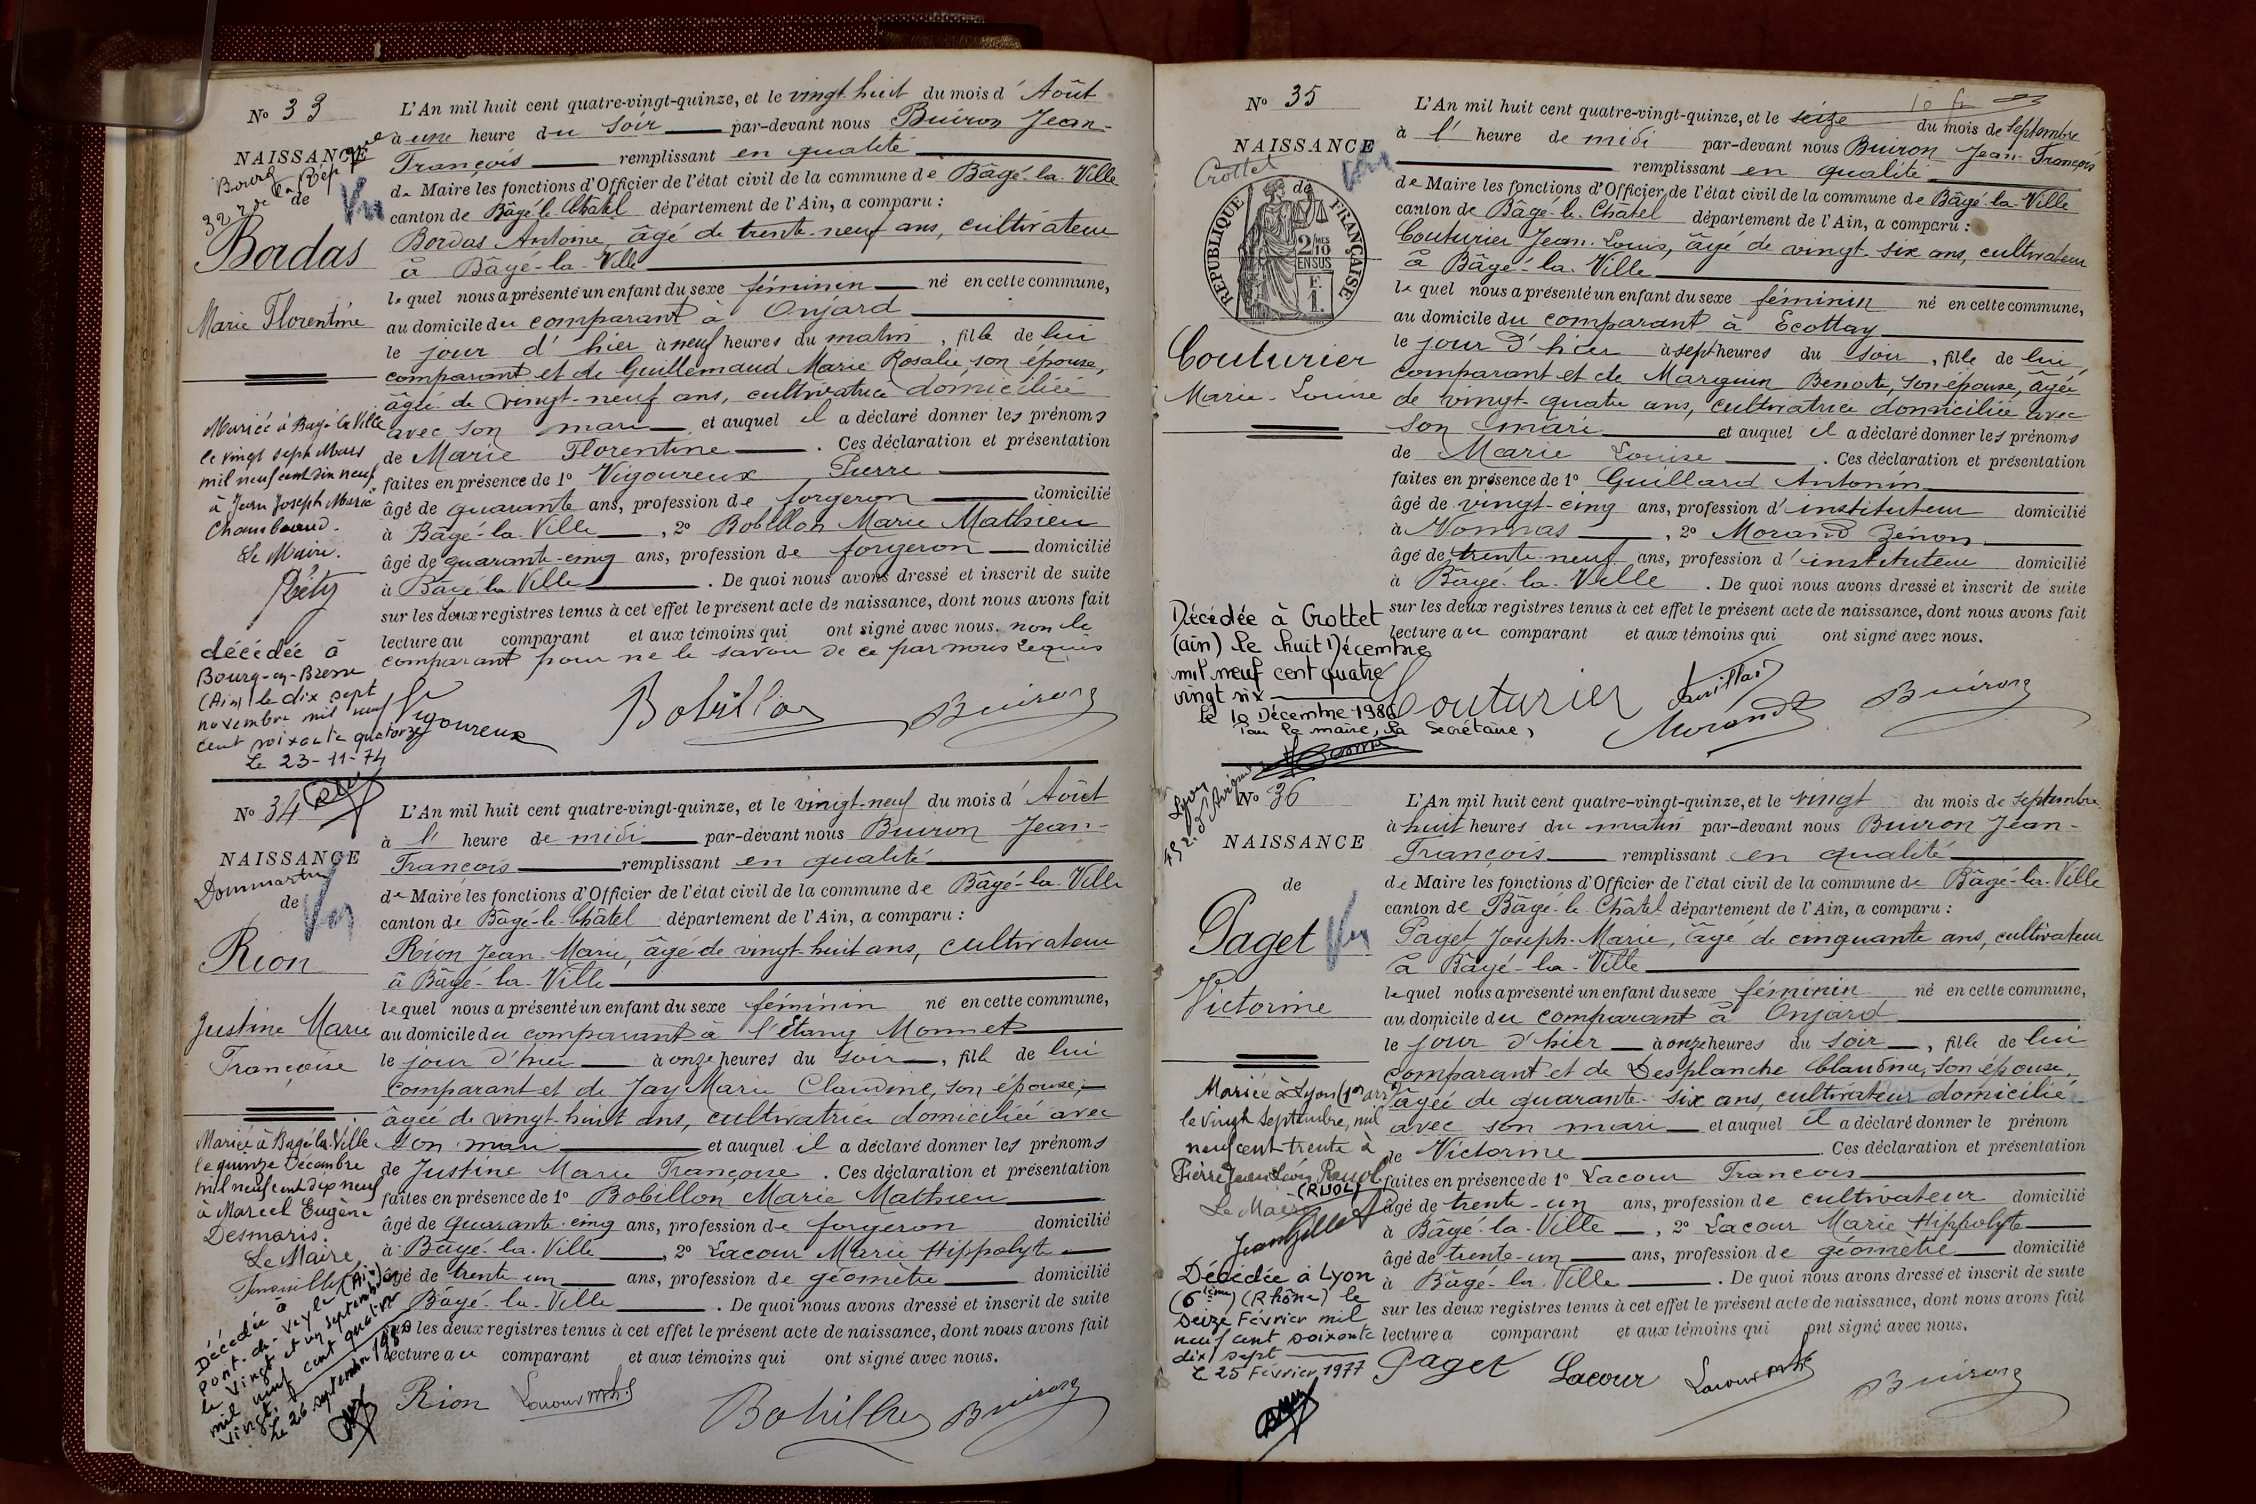 N° 33
NAISSANCE
Bourg
de
Vu
Bordas
Marie Florentine
Mariée à Bagé-la-Ville
le vingt sept Mars
mil neuf cent dix neuf
à Jean Joseph Marie
Chambaud.
Le Maire.
Préty
décédée à
Bourg-en-Bresse
(Ain) le dix sept
novembre mil neuf
cent soixante quatorze
Le 23-11-74
L'An mil huit cent quatre-vingt-quinze, et le vingt-huit du mois d'Août
à une heure du soir par-devant nous Buiron Jean-
François remplissant en qualité
de Maire les fonctions d'Officier de l'état civil de la commune de Bâgé-la-Ville
canton de Bâgé-le-Châtel département de l'Ain, a comparu :
Bordas Antoine, âgé de trente-neuf ans, cultivateur
à Bâgé-la-Ville
lequel nous a présenté un enfant du sexe féminin né en cette commune,
au domicile du comparant à Onjard
le jour d'hier à neuf heures du matin, fille de lui
comparant et de Guillemaud Marie Rosalie, son épouse,
âgée de vingt-neuf ans, cultivatrice domiciliée
avec son mari et auquel il a déclaré donner les prénoms
de Marie Florentine. Ces déclaration et présentation
faites en présence de 1° Vigoureux Pierre
âgé de quarante ans, profession de forgeron domicilié
à Bâgé-la-Ville, 2° Bobillon Marie Mathieu
âgé de quarante-cinq ans, profession de forgeron domicilié
à Bâgé-la-Ville. De quoi nous avons dressé et inscrit de suite
sur les deux registres tenus à cet effet le présent acte de naissance, dont nous avons fait
lecture au comparant et aux témoins qui ont signé avec nous, non le
comparant pour ne le savoir de ce par nous requis
Vigoureux Bobillon Buiron
N° 34
NAISSANCE
Dommartin
de
Vu
Rion
Justine Marie
Françoise
Mariée à Bagé-la-Ville
le quinze Décembre
mil neuf cent dix neuf
à Marcel Eugène
Desmaris.
Le Maire,
Décédée à
Pont-de-Veyle (Ain)
le vingt et un septembre
mil neuf cent quatre
vingt
Le 26 septembre 1980
L'An mil huit cent quatre-vingt-quinze, et le vingt-neuf du mois d'Août
à l'heure de midi par-devant nous Buiron Jean-
François remplissant en qualité
de Maire les fonctions d'Officier de l'état civil de la commune de Bâgé-la-Ville
canton de Bâgé-le-Châtel département de l'Ain, a comparu :
Rion Jean-Marie, âgé de vingt-huit ans, cultivateur
à Bâgé-la-Ville
lequel nous a présenté un enfant du sexe féminin né en cette commune,
au domicile du comparant à l'Etang Monnet
le jour d'hier à onze heures du soir, fille de lui
comparant et de Jay Marie Claudine, son épouse,
âgée de vingt-huit ans, cultivatrice domiciliée avec
son mari et auquel il a déclaré donner les prénoms
de Justine Marie Françoise. Ces déclaration et présentation
faites en présence de 1° Bobillon Marie Mathieu
âgé de quarante-cinq ans, profession de forgeron domicilié
à Bâgé-la-Ville, 2° Lacour Marie Hippolyte
âgé de trente un ans, profession de géomètre domicilié
Bâgé-la-Ville. De quoi nous avons dressé et inscrit de suite
les deux registres tenus à cet effet le présent acte de naissance, dont nous avons fait
lecture au comparant et aux témoins qui ont signé avec nous.
Rion Lacour Bobillon Buiron
N° 35
NAISSANCE
Crottet
de
Vu
RÉPUBLIQUE FRANÇAISE
2/10 EN SUS
F. 1.
Couturier
Marie-Louise
Décédée à Crottet
(ain) le huit Décembre
mil neuf cent quatre
vingt six
le 10 Décembre 1986
Pour le maire, la Secrétaire,
L'An mil huit cent quatre-vingt-quinze, et le seize du mois de Septembre
à l'heure de midi par-devant nous Buiron Jean-François
remplissant en qualité
de Maire les fonctions d'Officier de l'état civil de la commune de Bâgé-la-Ville
canton de Bâgé-le-Châtel département de l'Ain, a comparu :
Couturier Jean-Louis, âgé de vingt-six ans, cultivateur
à Bâgé-la-Ville
lequel nous a présenté un enfant du sexe féminin né en cette commune,
au domicile du comparant à Ecottay
le jour d'hier à sept heures du soir, fille de lui,
comparant et de Marguin Benoite, son épouse, âgée
de vingt-quatre ans, cultivatrice domiciliée avec
son mari et auquel il a déclaré donner les prénoms
de Marie Louise. Ces déclaration et présentation
faites en présence de 1° Guillard Antonin
âgé de vingt-cinq ans, profession d'instituteur domicilié
à Vonnas, 2° Morand Zénon
âgé de trente-neuf ans, profession d'instituteur domicilié
à Bâgé-la-Ville. De quoi nous avons dressé et inscrit de suite
sur les deux registres tenus à cet effet le présent acte de naissance, dont nous avons fait
lecture au comparant et aux témoins qui ont signé avec nous.
Couturier Guillard Morand Buiron
Lyon
N° 36
NAISSANCE
de
Paget Vu
Victorine
Mariée à Lyon (1er arr)
le vingt septembre, mil
neuf cent trente à
Pierre Jean Léon Rujol
(RUJOL)
Le Maire
Décédée à Lyon
(6ième) (Rhône) le
seize Février mil
neuf cent soixante
dix sept
Le 25 Février 1977
L'An mil huit cent quatre-vingt-quinze, et le vingt du mois de septembre
à huit heures du matin par-devant nous Buiron Jean-
François remplissant en qualité
de Maire les fonctions d'Officier de l'état civil de la commune de Bâgé-la-Ville
canton de Bâgé-le-Châtel département de l'Ain, a comparu :
Paget Joseph-Marie, âgé de cinquante ans, cultivateur
à Bâgé-la-Ville
lequel nous a présenté un enfant du sexe féminin né en cette commune,
au domicile du comparant à Onjard
le jour d'hier à onze heures du soir, fille de lui
comparant et de Desplanche Claudine, son épouse,
âgée de quarante-six ans, cultivateur domiciliée
avec son mari et auquel il a déclaré donner le prénom
de Victorine. Ces déclaration et présentation
faites en présence de 1° Lacour François
âgé de trente-un ans, profession de cultivateur domicilié
à Bâgé-la-Ville, 2° Lacour Marie Hippolyte
âgé de trente-un ans, profession de géomètre domicilié
à Bâgé-la-Ville. De quoi nous avons dressé et inscrit de suite
sur les deux registres tenus à cet effet le présent acte de naissance, dont nous avons fait
lecture a comparant et aux témoins qui ont signé avec nous.
Paget Lacour Lacour Buiron